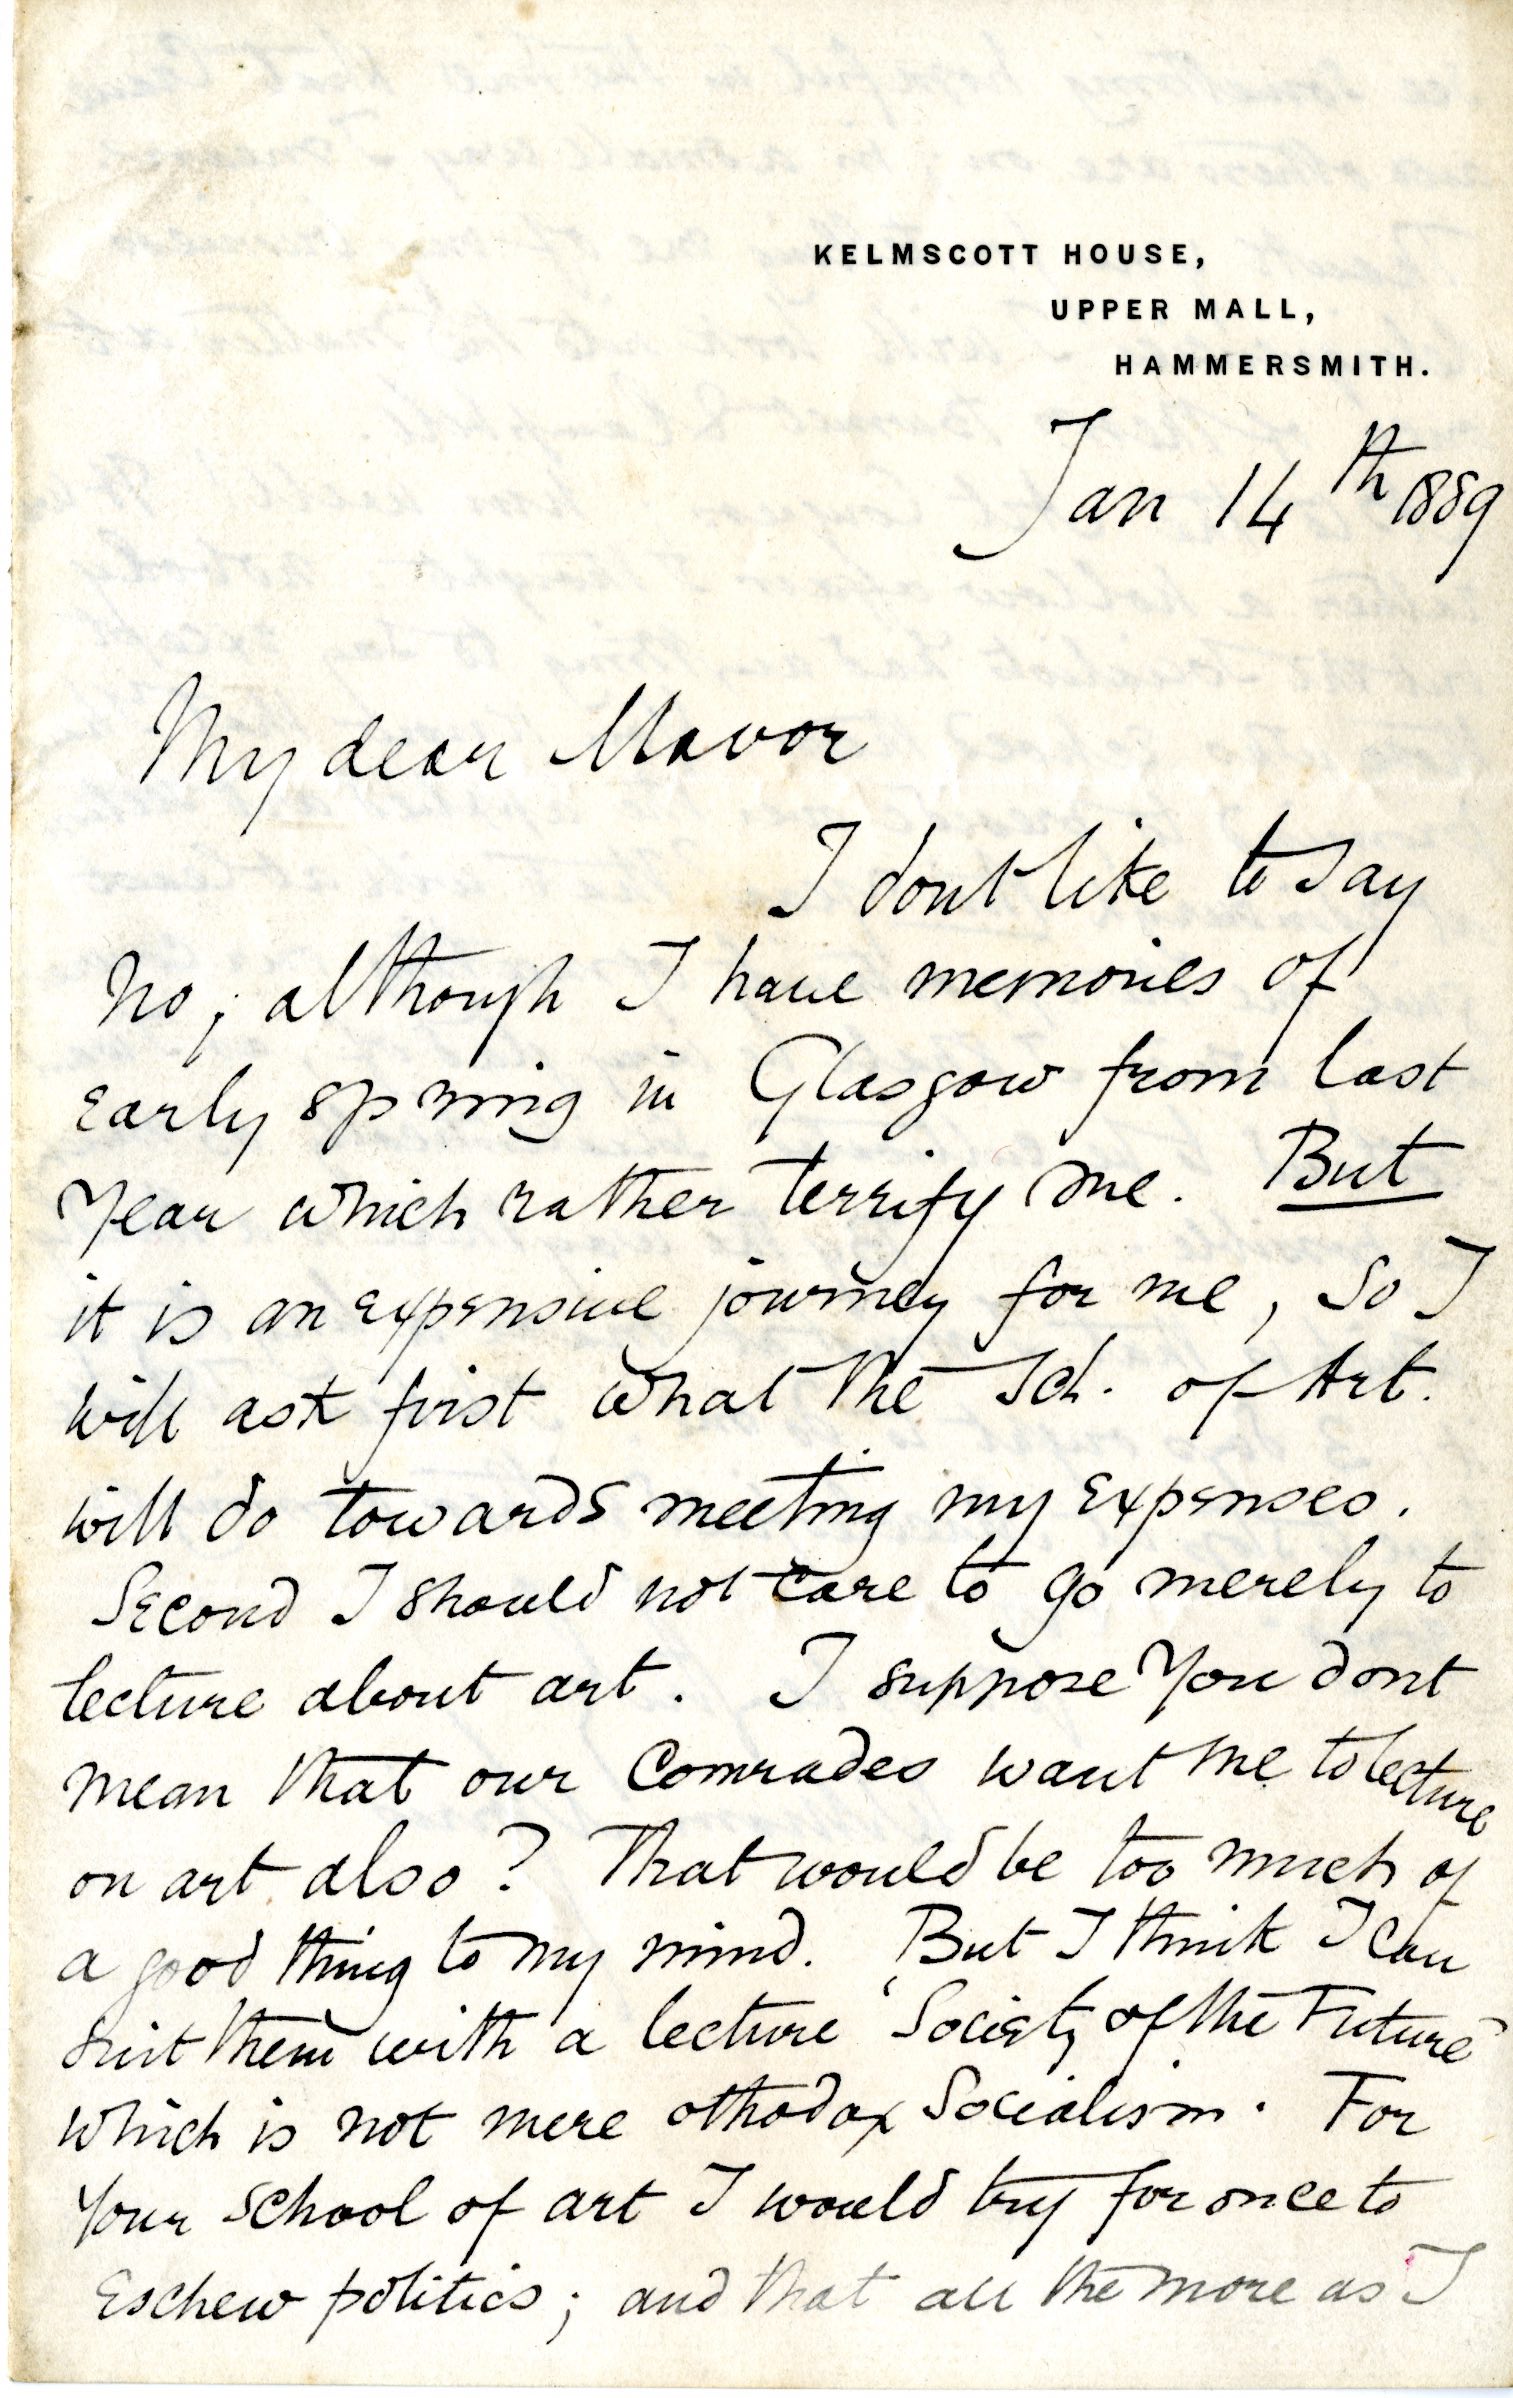 KELMSCOTT HOUSE,
UPPER MALL,
HAMMERSMITH.
Jan 14th 1889
My dear Mavor
I dont like to say
No; although I have memories of
early spring in Glasgow from last
year which rather terrify me. But
it is an expensive journey for me, so I
will ask first what the Sch. of Art.
will do towards meeting my expenses.
Second I should not care to go merely to
lecture about art. I suppose you dont
mean that our comrades want me to lecture
on art also? That would be too much of
a good thing to my mind. But I think I can
suit them with a lecture 'Society of the Future'
which is not mere othodox Socialism. For
your school of art I would try for once to
eschew politics; and that all the more as I